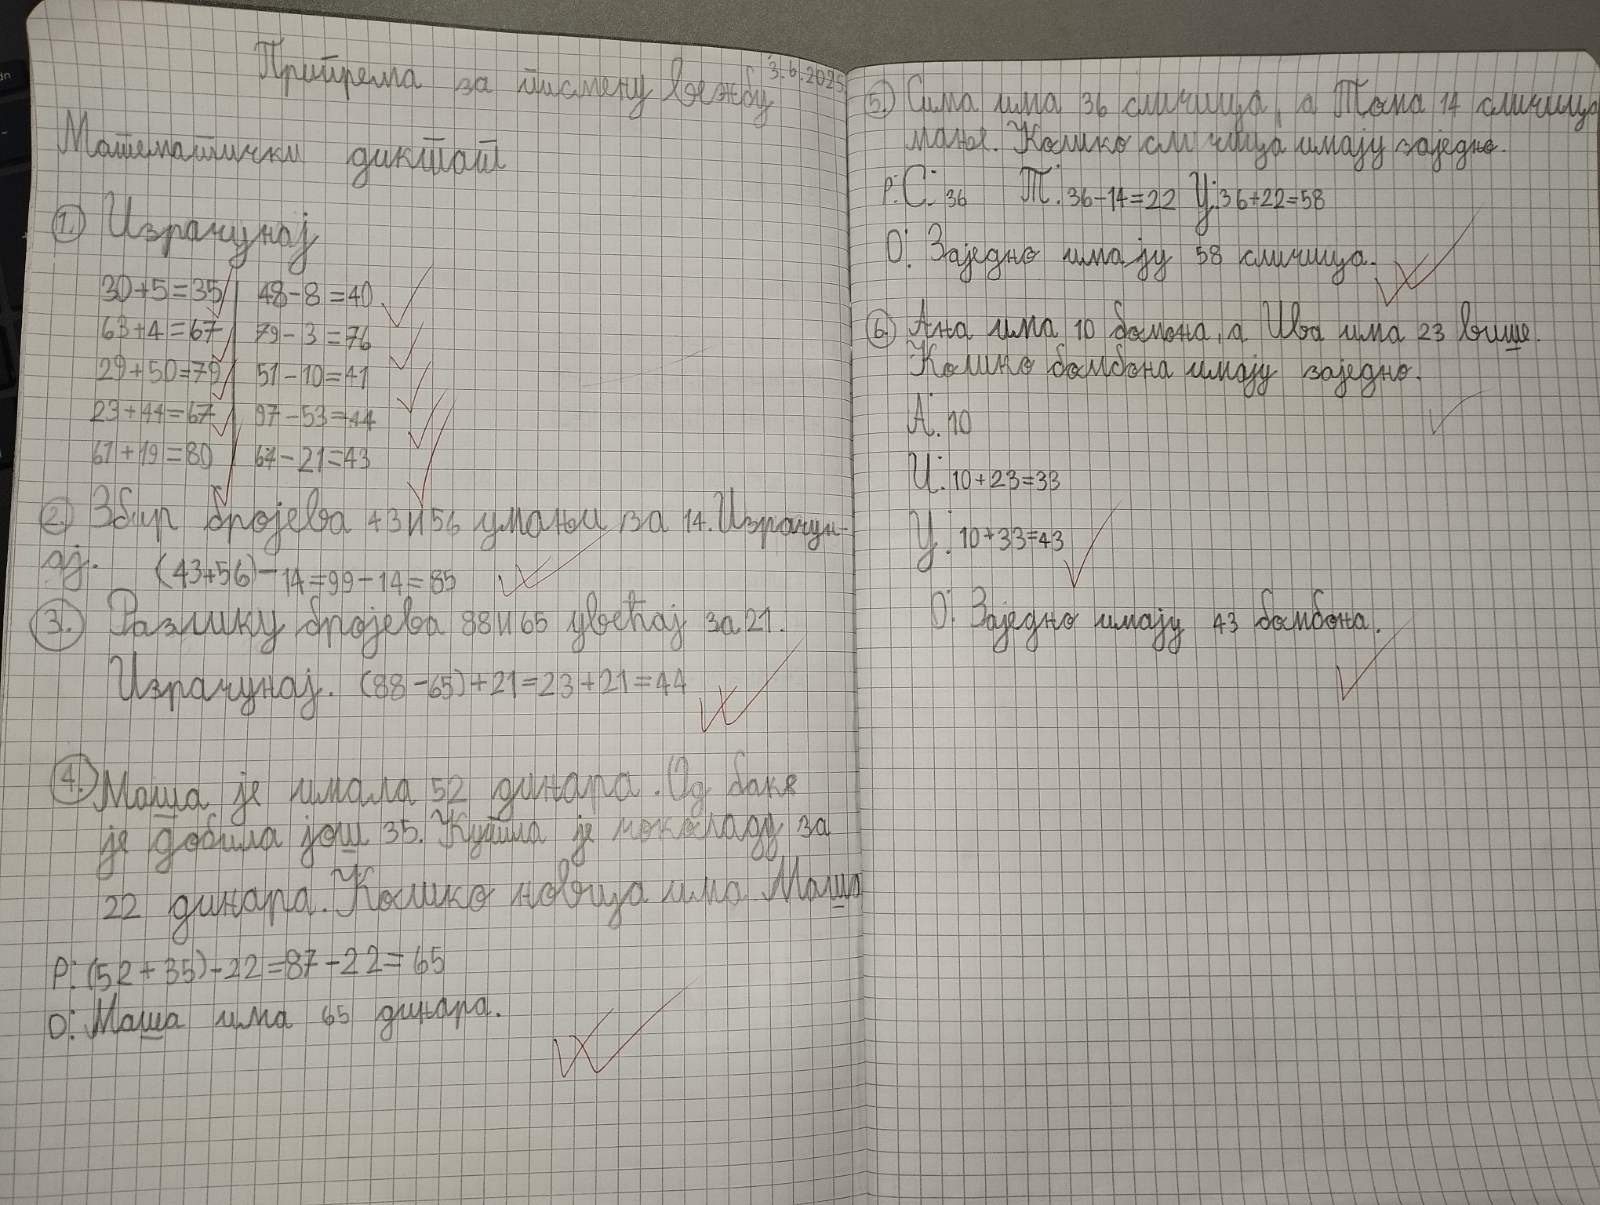 3.6.2025.
Припрема за писмену вежбу
Математички диктат
1. Израчунај
30+5=35 48-8=40
63+4=67 79-3=76
29+50=79 51-10=41
23+44=67 97-53=44
61+19=80 64-21=43
2. Збир бројева 43 и 56 умањи за 14. Израчун-
ај. (43+56)-14=99-14=85
3. Разлику бројева 88 и 65 увећај за 21.
Израчунај. (88-65)+21=23+21=44
4. Маша је имала 52 динара. Од баке
је добила још 35. Купила је чоколаду за
22 динара. Колико новца има Маша
Р: (52+35)-22=87-22=65
О: Маша има 65 динара.
5. Сима има 36 сличица, а Тома 14 сличица
мање. Колико сличица имају заједно.
Р: С: 36 Т: 36-14=22 У: 36+22=58
О: Заједно имају 58 сличица.
6. Ана има 10 бомона, а Ива има 23 више.
Колико бомбона имају заједно.
А: 10
И: 10+23=33
У: 10+33=43
О: Заједно имају 43 бомбона.